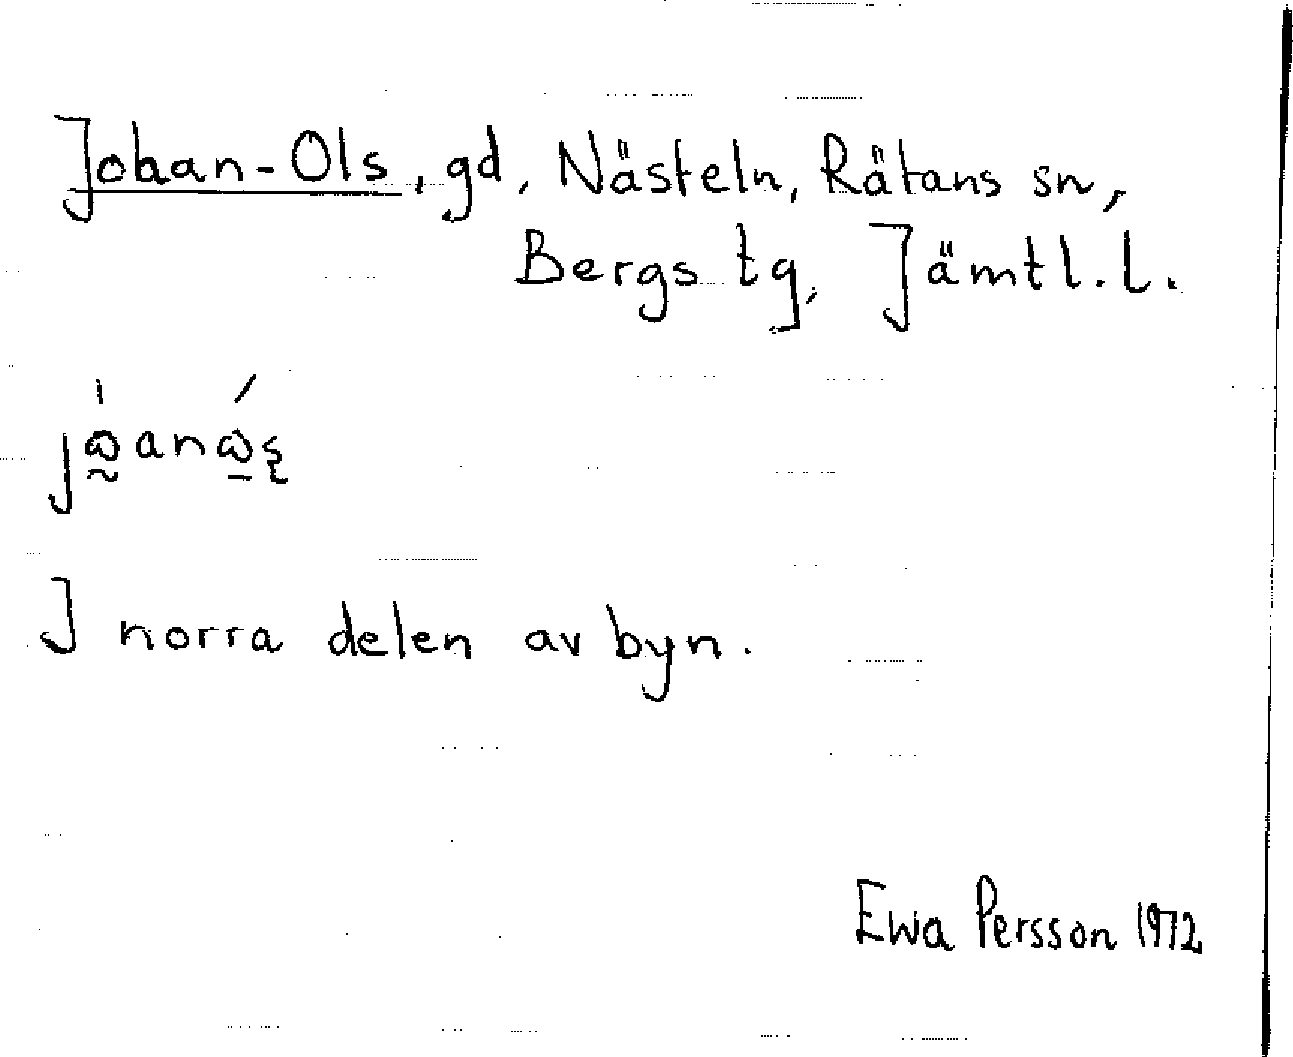 Johan-Ols, gd, Nästeln, Rätans sn,
Bergs tg, Jämtl.l.
I norra delen av byn.
Ewa Persson 1972